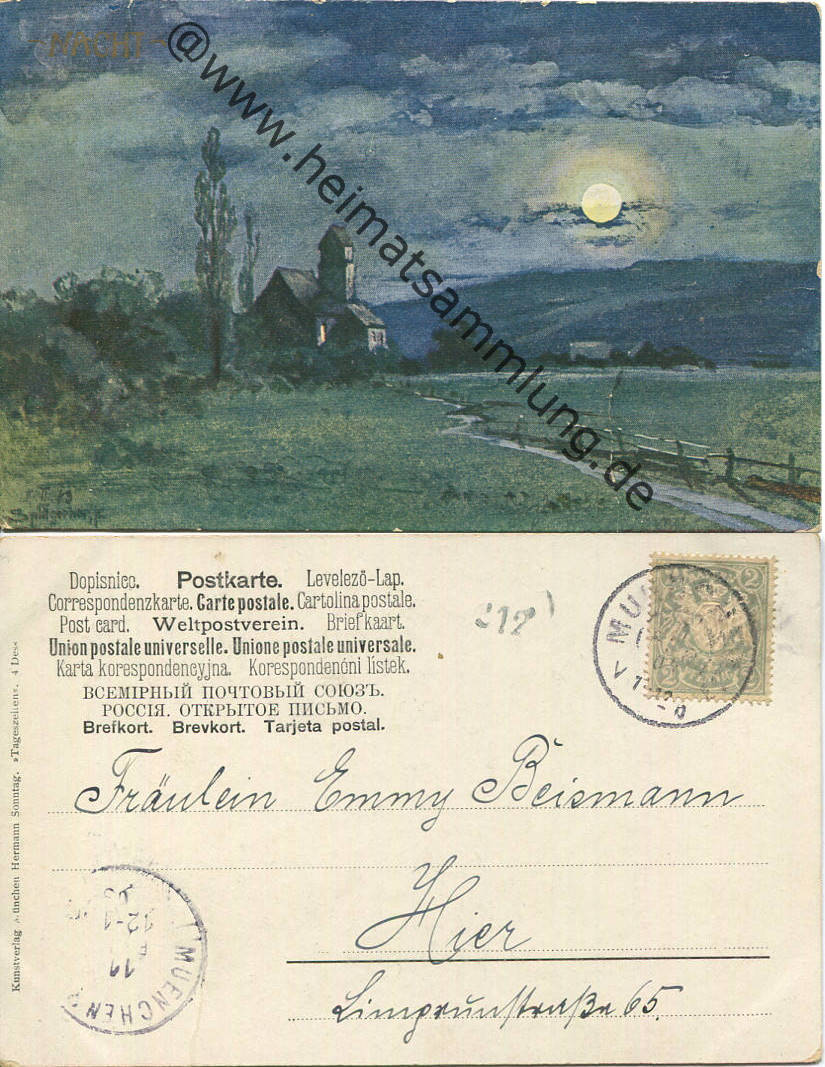 - NACHT -
@www.heimatsammlung.de
Dopisniec. Postkarte. Levelező-Lap.
Correspondenzkarte. Carte postale. Cartolina postale.
Post card. Weltpostverein. Briefkaart.
Union postale universelle. Unione postale universale.
Karta korespondencyjna. Korespondenóni listek.
ВСЕМІРНЫЙ ПОЧТОВЫЙ СОЮЗЪ.
РОССІЯ. ОТКРЫТОЕ ПИСЬМО.
Brefkort. Brevkort. Tarjeta postal.
212
2 2
2
Fräulein Emmy Beismann
Hier
Limprunstraße 65.
MUENCHEN
12-1
11
Kunstverlag München Hermann Sonntag. »Tageszeiten«. 4 Dess